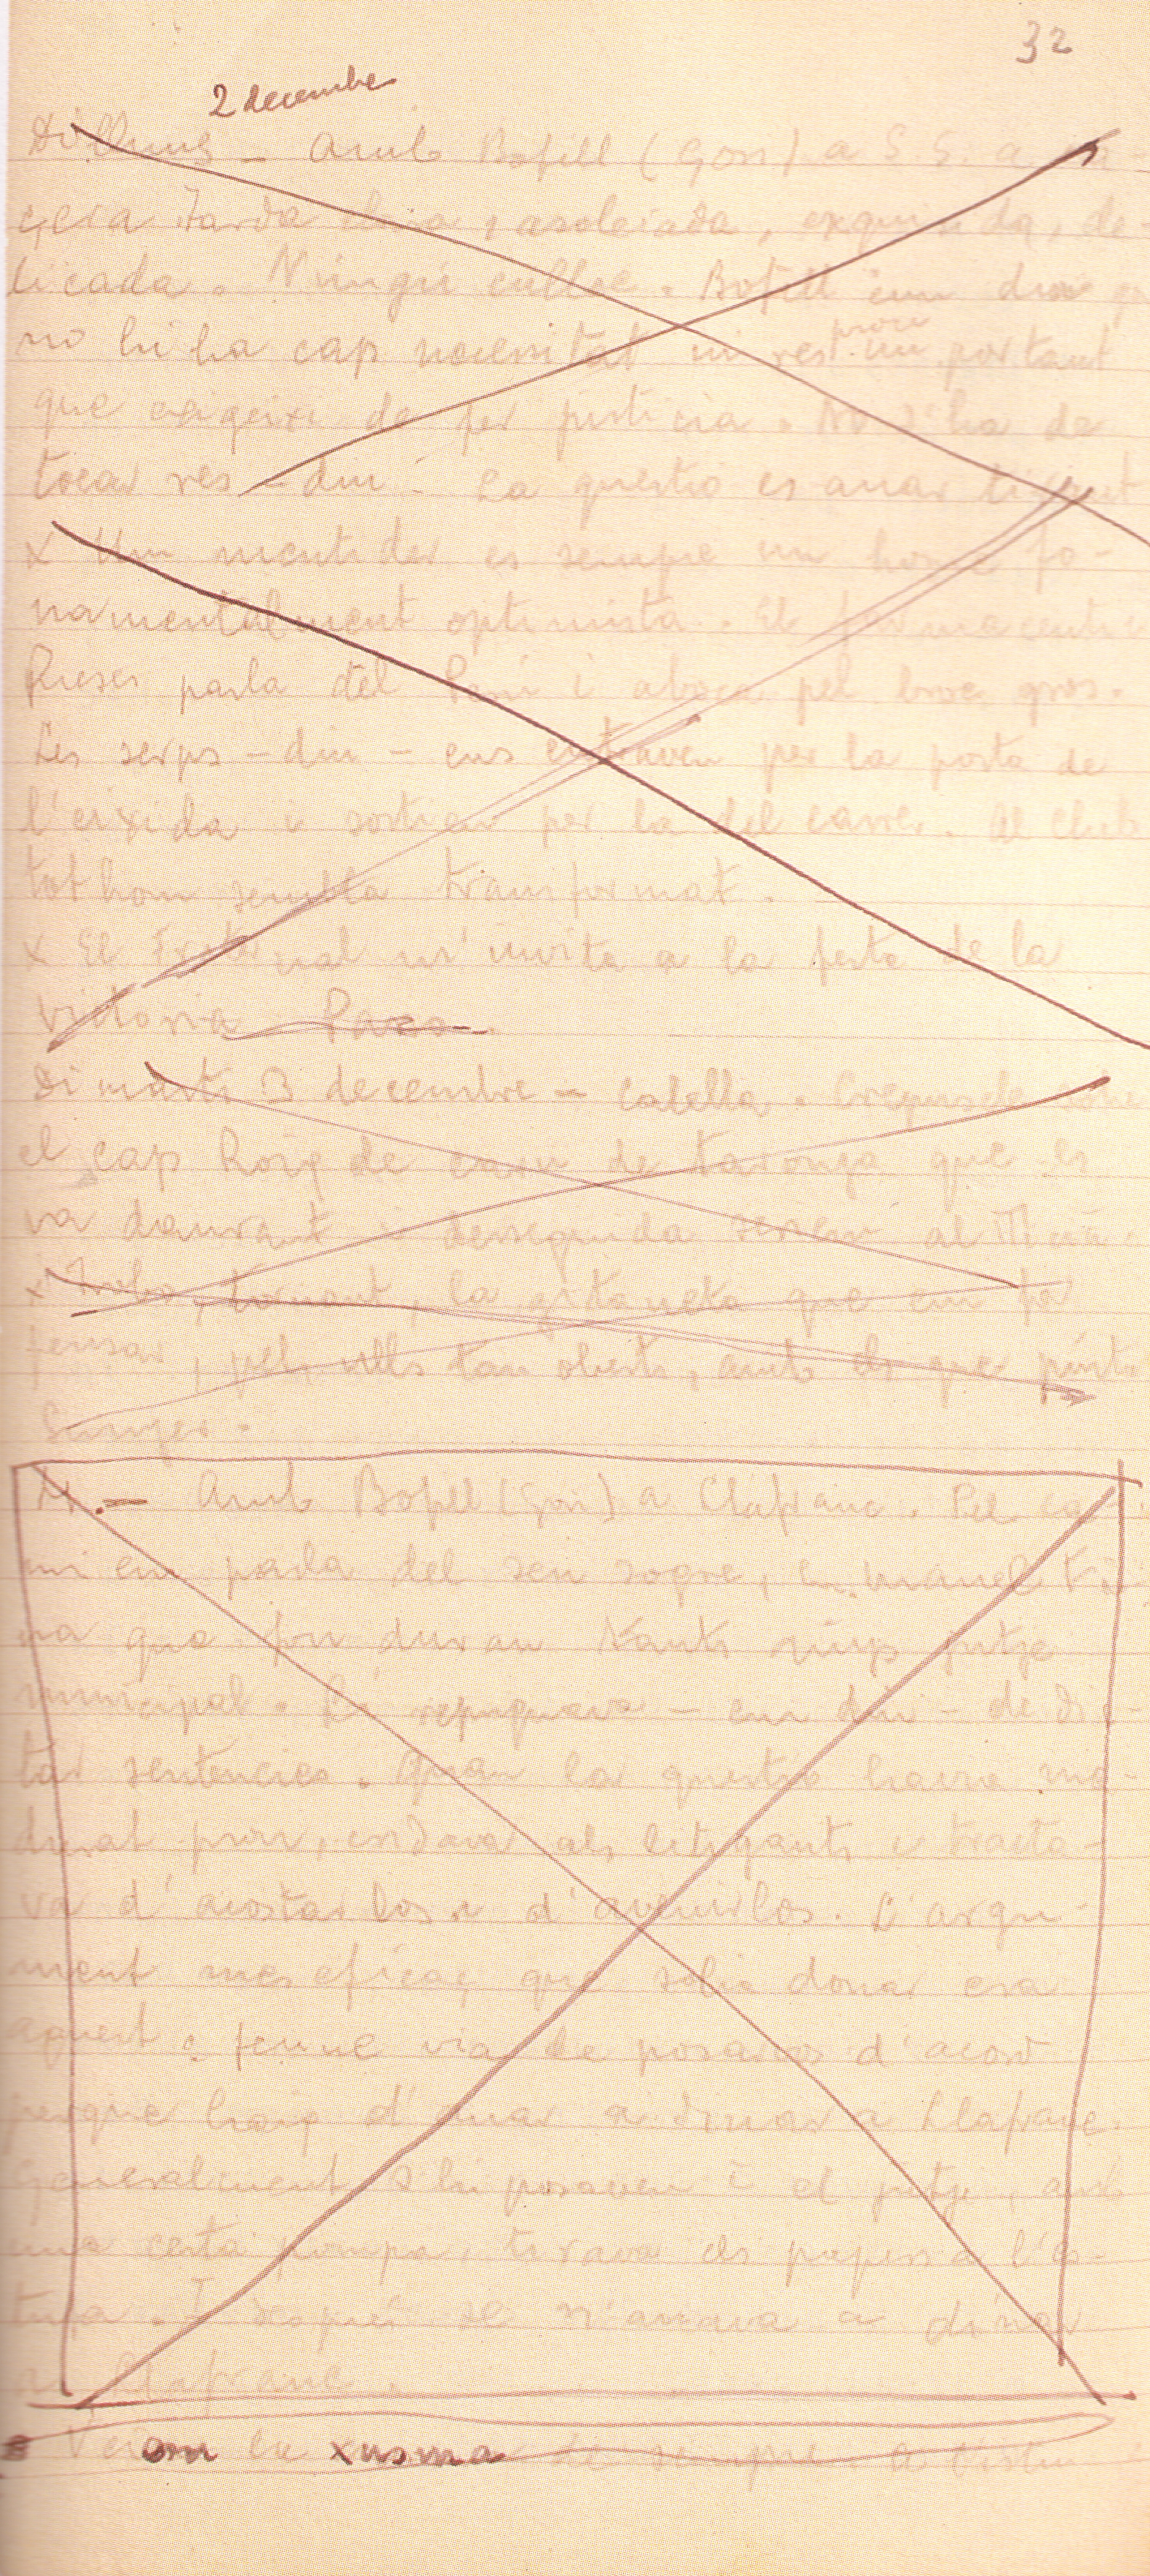 32
2 decembre
Dilluns – Amb Bofill (Gori) a S. S. a
tarda clara, assoleiada, exquisida, de-
licada. Ningú enlloc. Bofill em diu
no hi ha cap necessitat ni res prou important
que exigeixi de fer justicia. No s'ha de
tocar res – diu –. La questió es anar tirant
x Un mentider es sempre un home fo-
namentalment optimista. El farmaceutic
parla del i aboca pel broc gros.
Les serps – diu – ens entraven per la porta de
l'eixida i sortien per la del carrer. Al Club
tothom sembla transformat.
x El m'invita a la festa de la
victoria
Dimarts 3 decembre – Calella. Crepuscle sobre
el cap Roig de carn de taronja que es
va daurant i desseguida
x Trobo, tornant, la gitaneta que em fa
pensar, pels ulls tan oberts, amb els que pinta
Sunyer.
x. – Amb Bofill (Gori) a Llafranc. Pel ca-
mi em parla del seu sogre, En Manel
que fou duran tants anys jutje
municipal. Li repugnava – em diu – de dic-
tar sentencies. Quan la questió havia ma-
durat prou, cridava als litigants i tracta-
va d'acostarlos i d'avenirlos. L'argu-
ment mes eficaç que solia donar era
aquest: feu-ne via de posarvos d'acord
perquè haig d'anar a dinar a Llafranc.
Generalment s'hi posaven i el jutje, amb
una certa pompa, tirava els papers a l'es-
tufa. I després se n'anava a dinar
a Llafranc.
la xusma de sempre. A